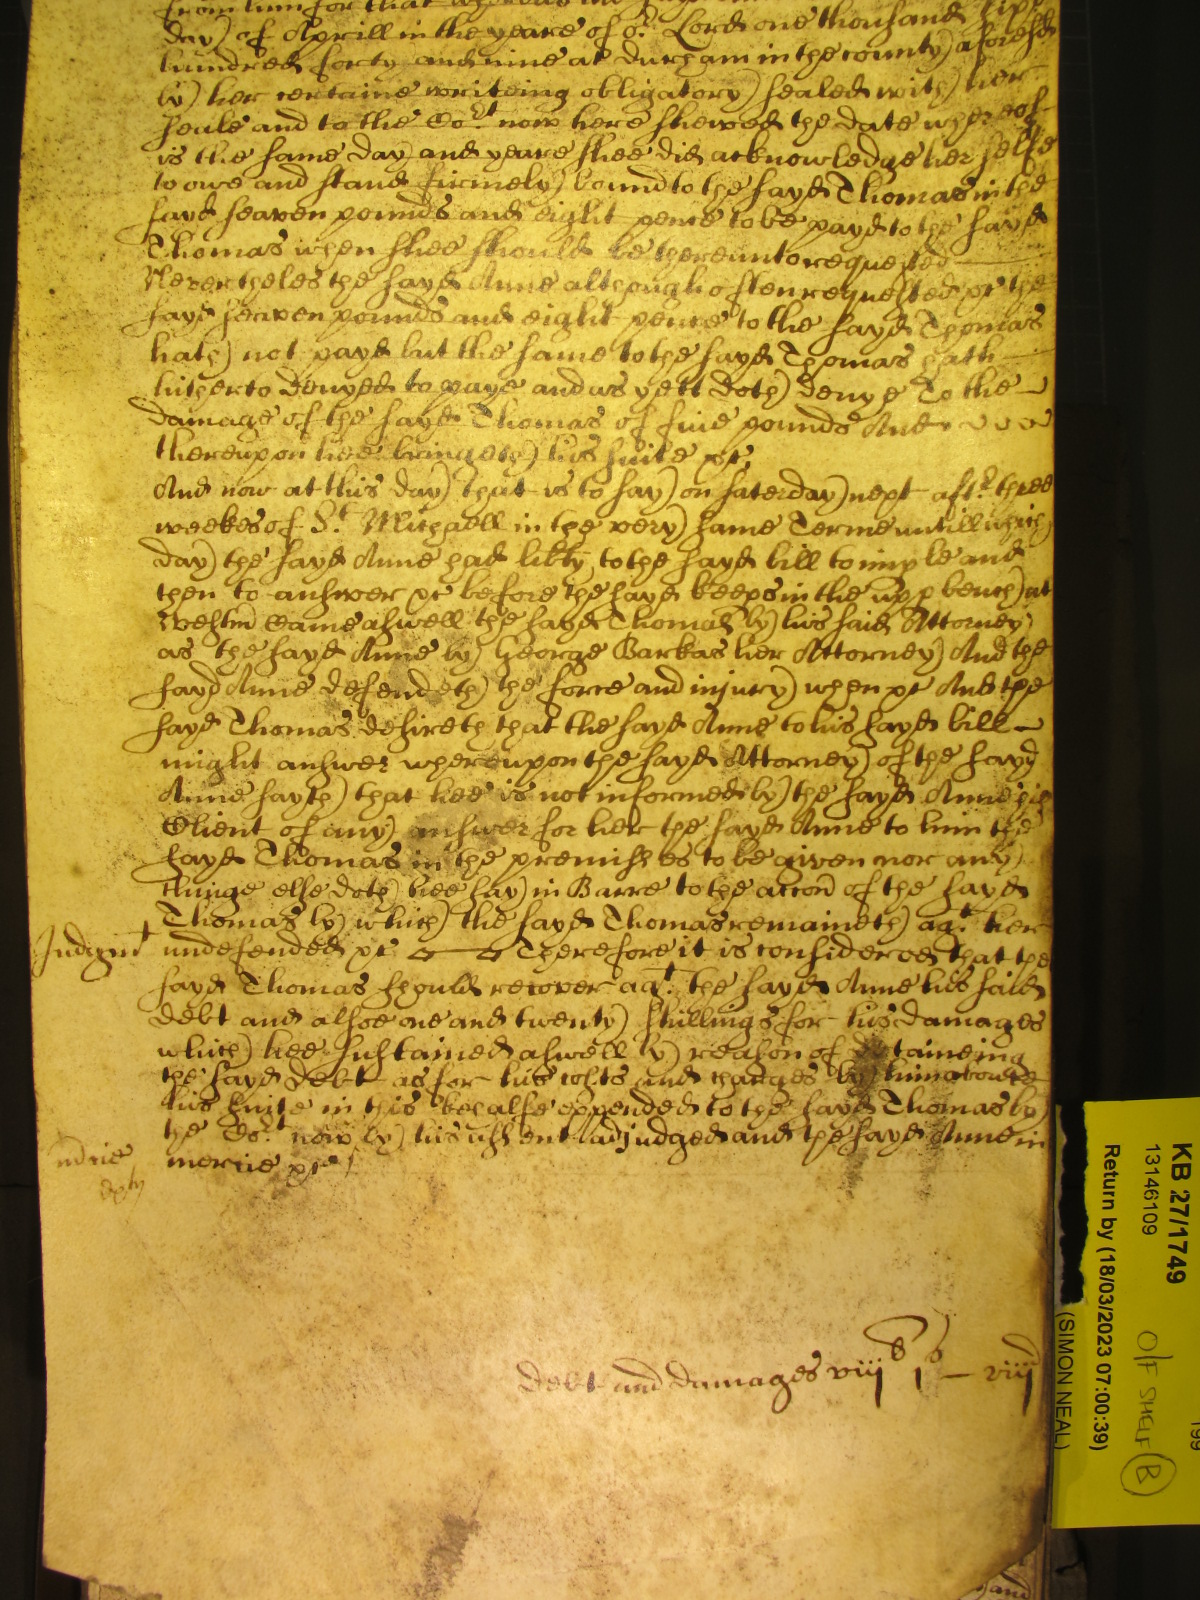 from him for that whereas
day of Aprill in the yeare of or Lord one thousand sixe
hundred forty and nine at Durham in the county aforesd
by her certaine writeing obligatory sealed with her
seale and to the Cort now here shewed the date whereof
is the same day and yeare shee did acknowledge her selfe
to owe and stand firmely bound to the sayd Thomas in the
sayd seaven pounds and eight pence to be payd to the sayd
Thomas when shee should be thereunto requested
Nevertheles the sayd Anne although often requested &c the
sayd seaven pounds and eight pence to the sayd Thomas
hath not payd but the same to the sayd Thomas hath
hitherto denyed to paye and as yett doth denye To the
damage of the sayd Thomas of five pounds And
thereupon hee bringeth his suite &c
And now at this day that is to say on Saterday next aftr three
weekes of St Michaell in the very same Terme untill which
day the sayd Anne had libty to the sayd bill to imple and
then to answer &c before the sayd keeps in the upp bench at
Westm Came aswell the sayd Thomas by his said Attorney
as the sayd Anne by George Barkas her Attorney And the
sayd Anne defendeth the force and injury when &c And the
sayd Thomas desireth that the sayd Anne to his sayd bill
might answer whereupon the sayd Attorney of the sayd
Anne sayth that hee is not informed by the sayd Anne his
Client of any answer for her the sayd Anne to him the
sayd Thomas in the premisses to be given nor any
thinge else doth hee say in Barre to the accon of the sayd
Thomas by which the sayd Thomas remaineth agt her
Judgmt undefended &c Therefore it is considered that the
sayd Thomas should recover agt the sayd Anne his said
debt and alsoe one and twenty shillings for his damages
which hee sustained aswell by reason of detaineing
the sayd debt as for his costs and charges by him aboute
his suite in this behalfe expended to the sayd Thomas by
the Cort now by his assent adjudged and the sayd Anne in
mercie &c
debt and damages viij l j s – viij d
KB 27/1749
13146109
Return by (18/03/2023 07:00:39)
(SIMON NEAL)
O/F SHELF B
199